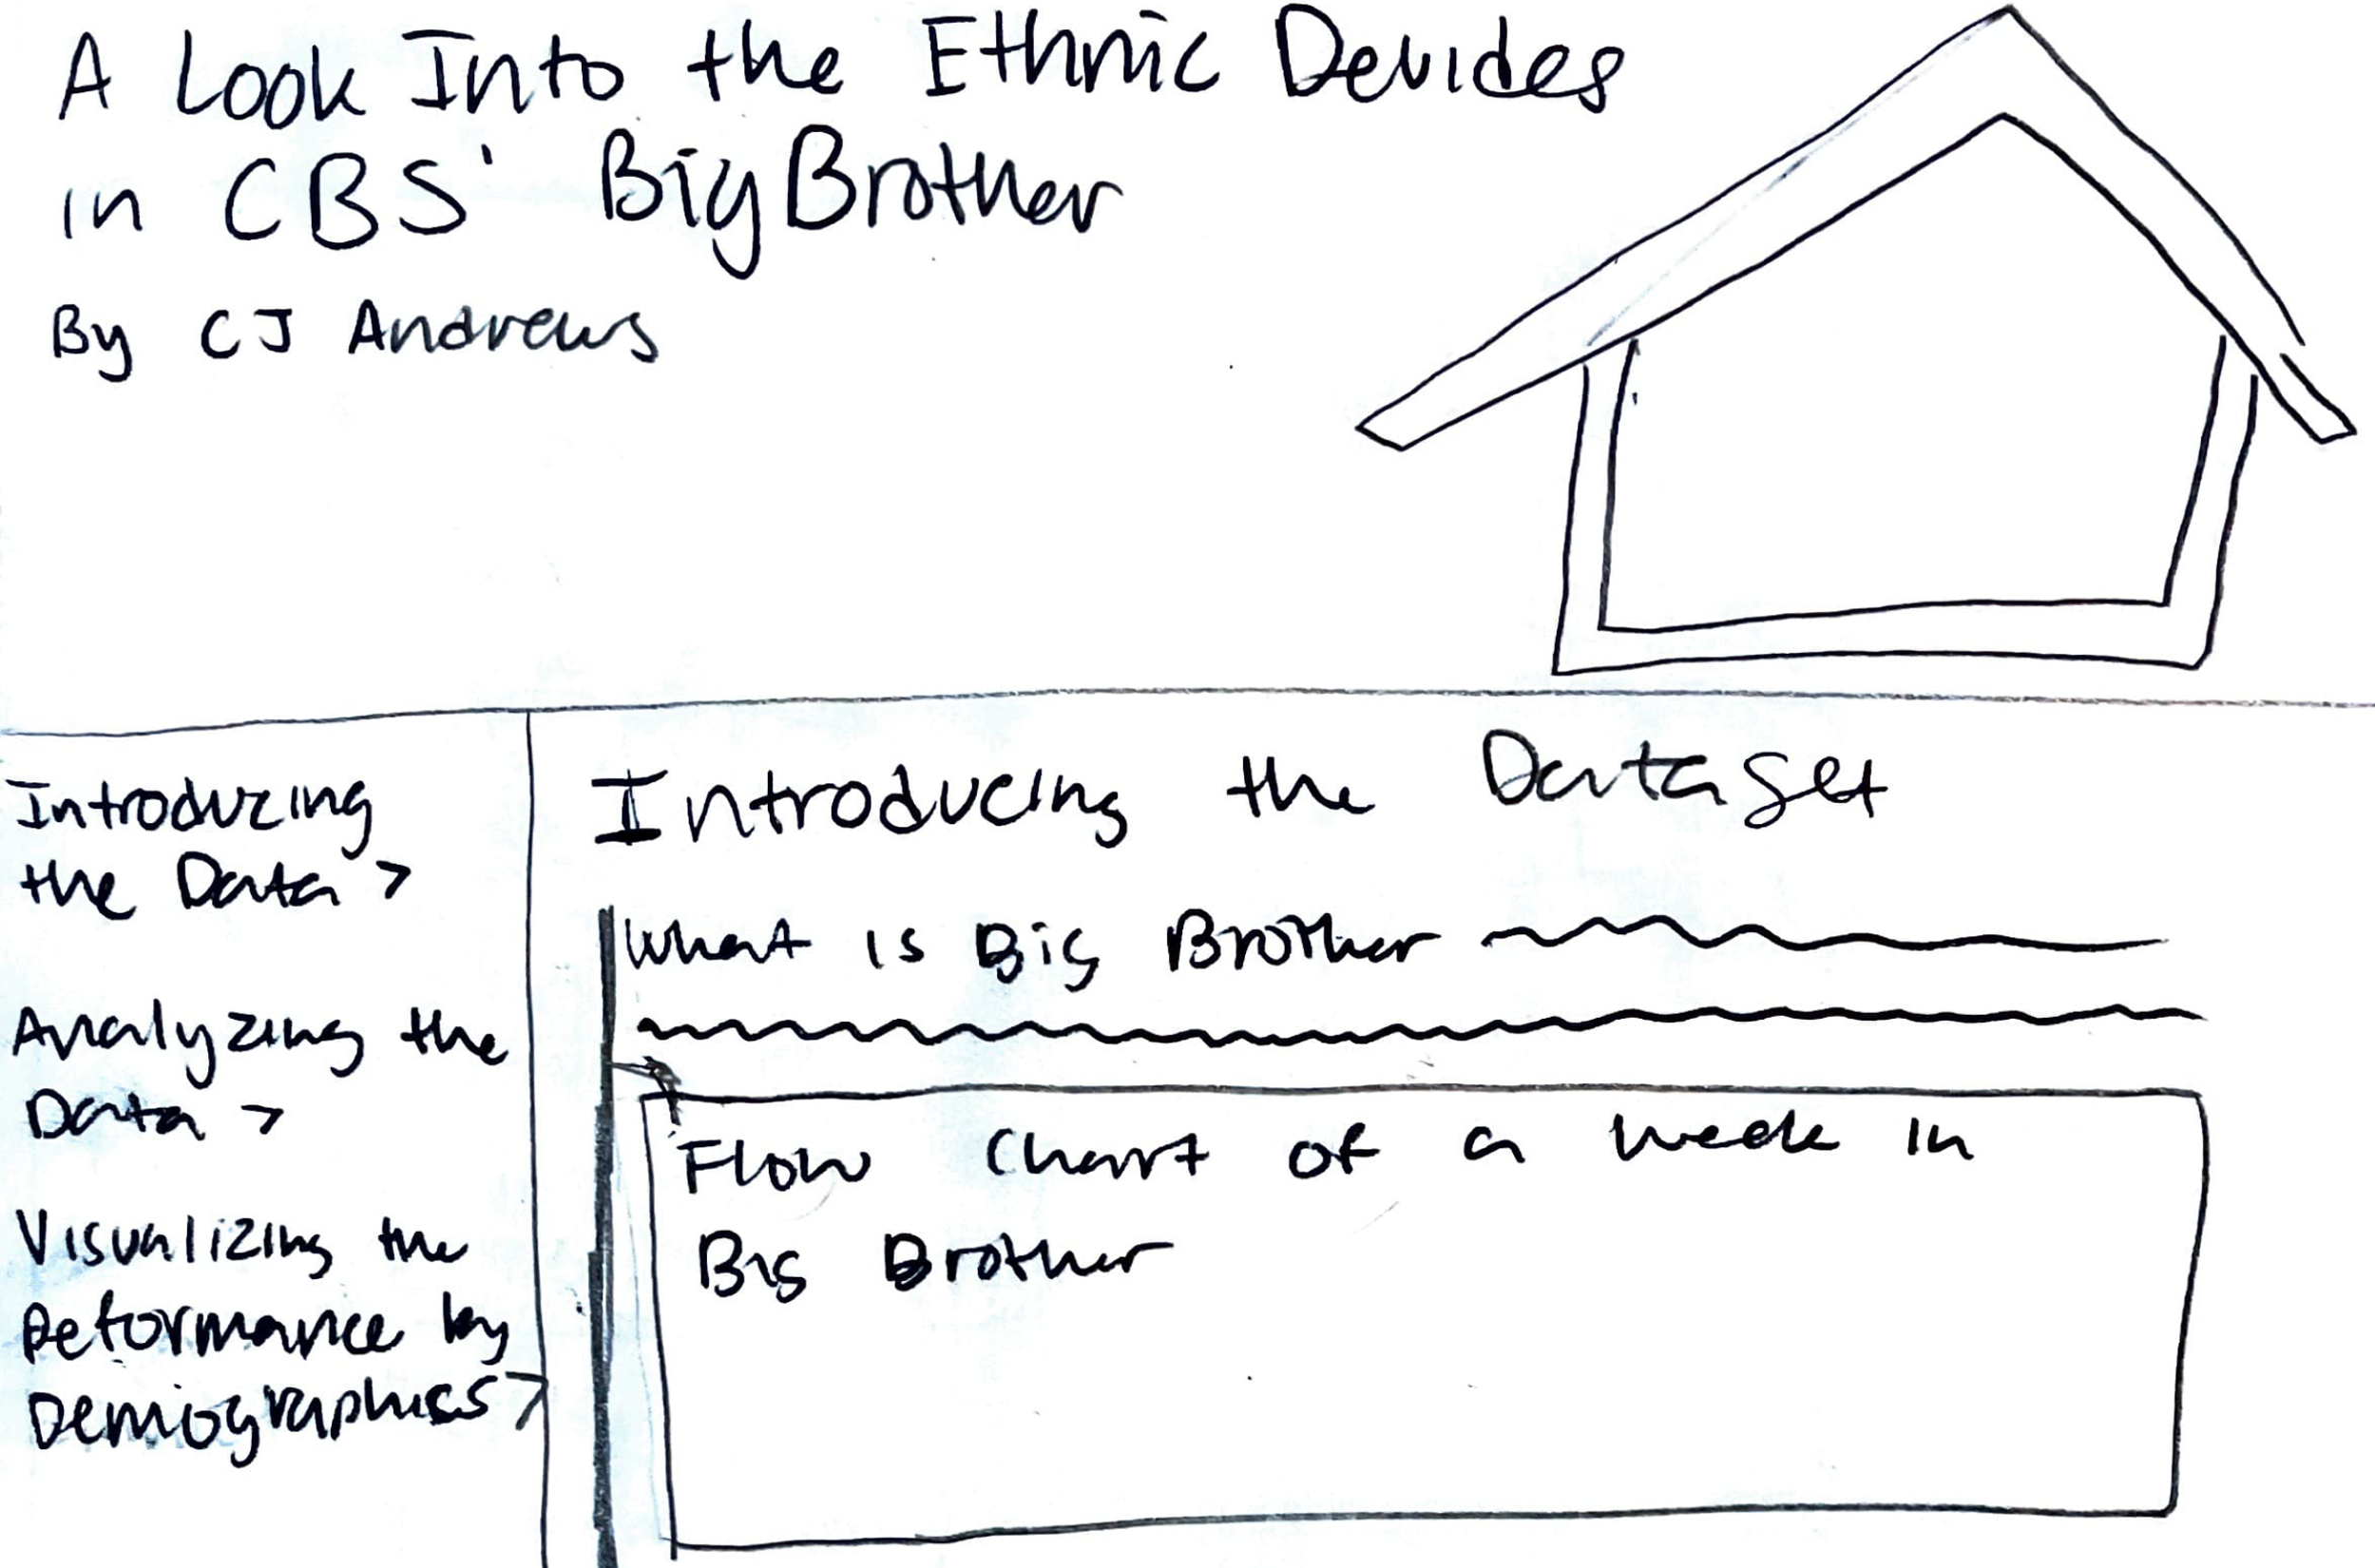 A Look Into the Ethnic Devides
in CBS' Big Brother
By CJ Andrews
Introducing
the Data >
Analyzing the
Data >
Visualizing the
Peformance by
Demographics >
Introducing the Dataset
What is Big Brother
Flow Chart of a week in
Big Brother